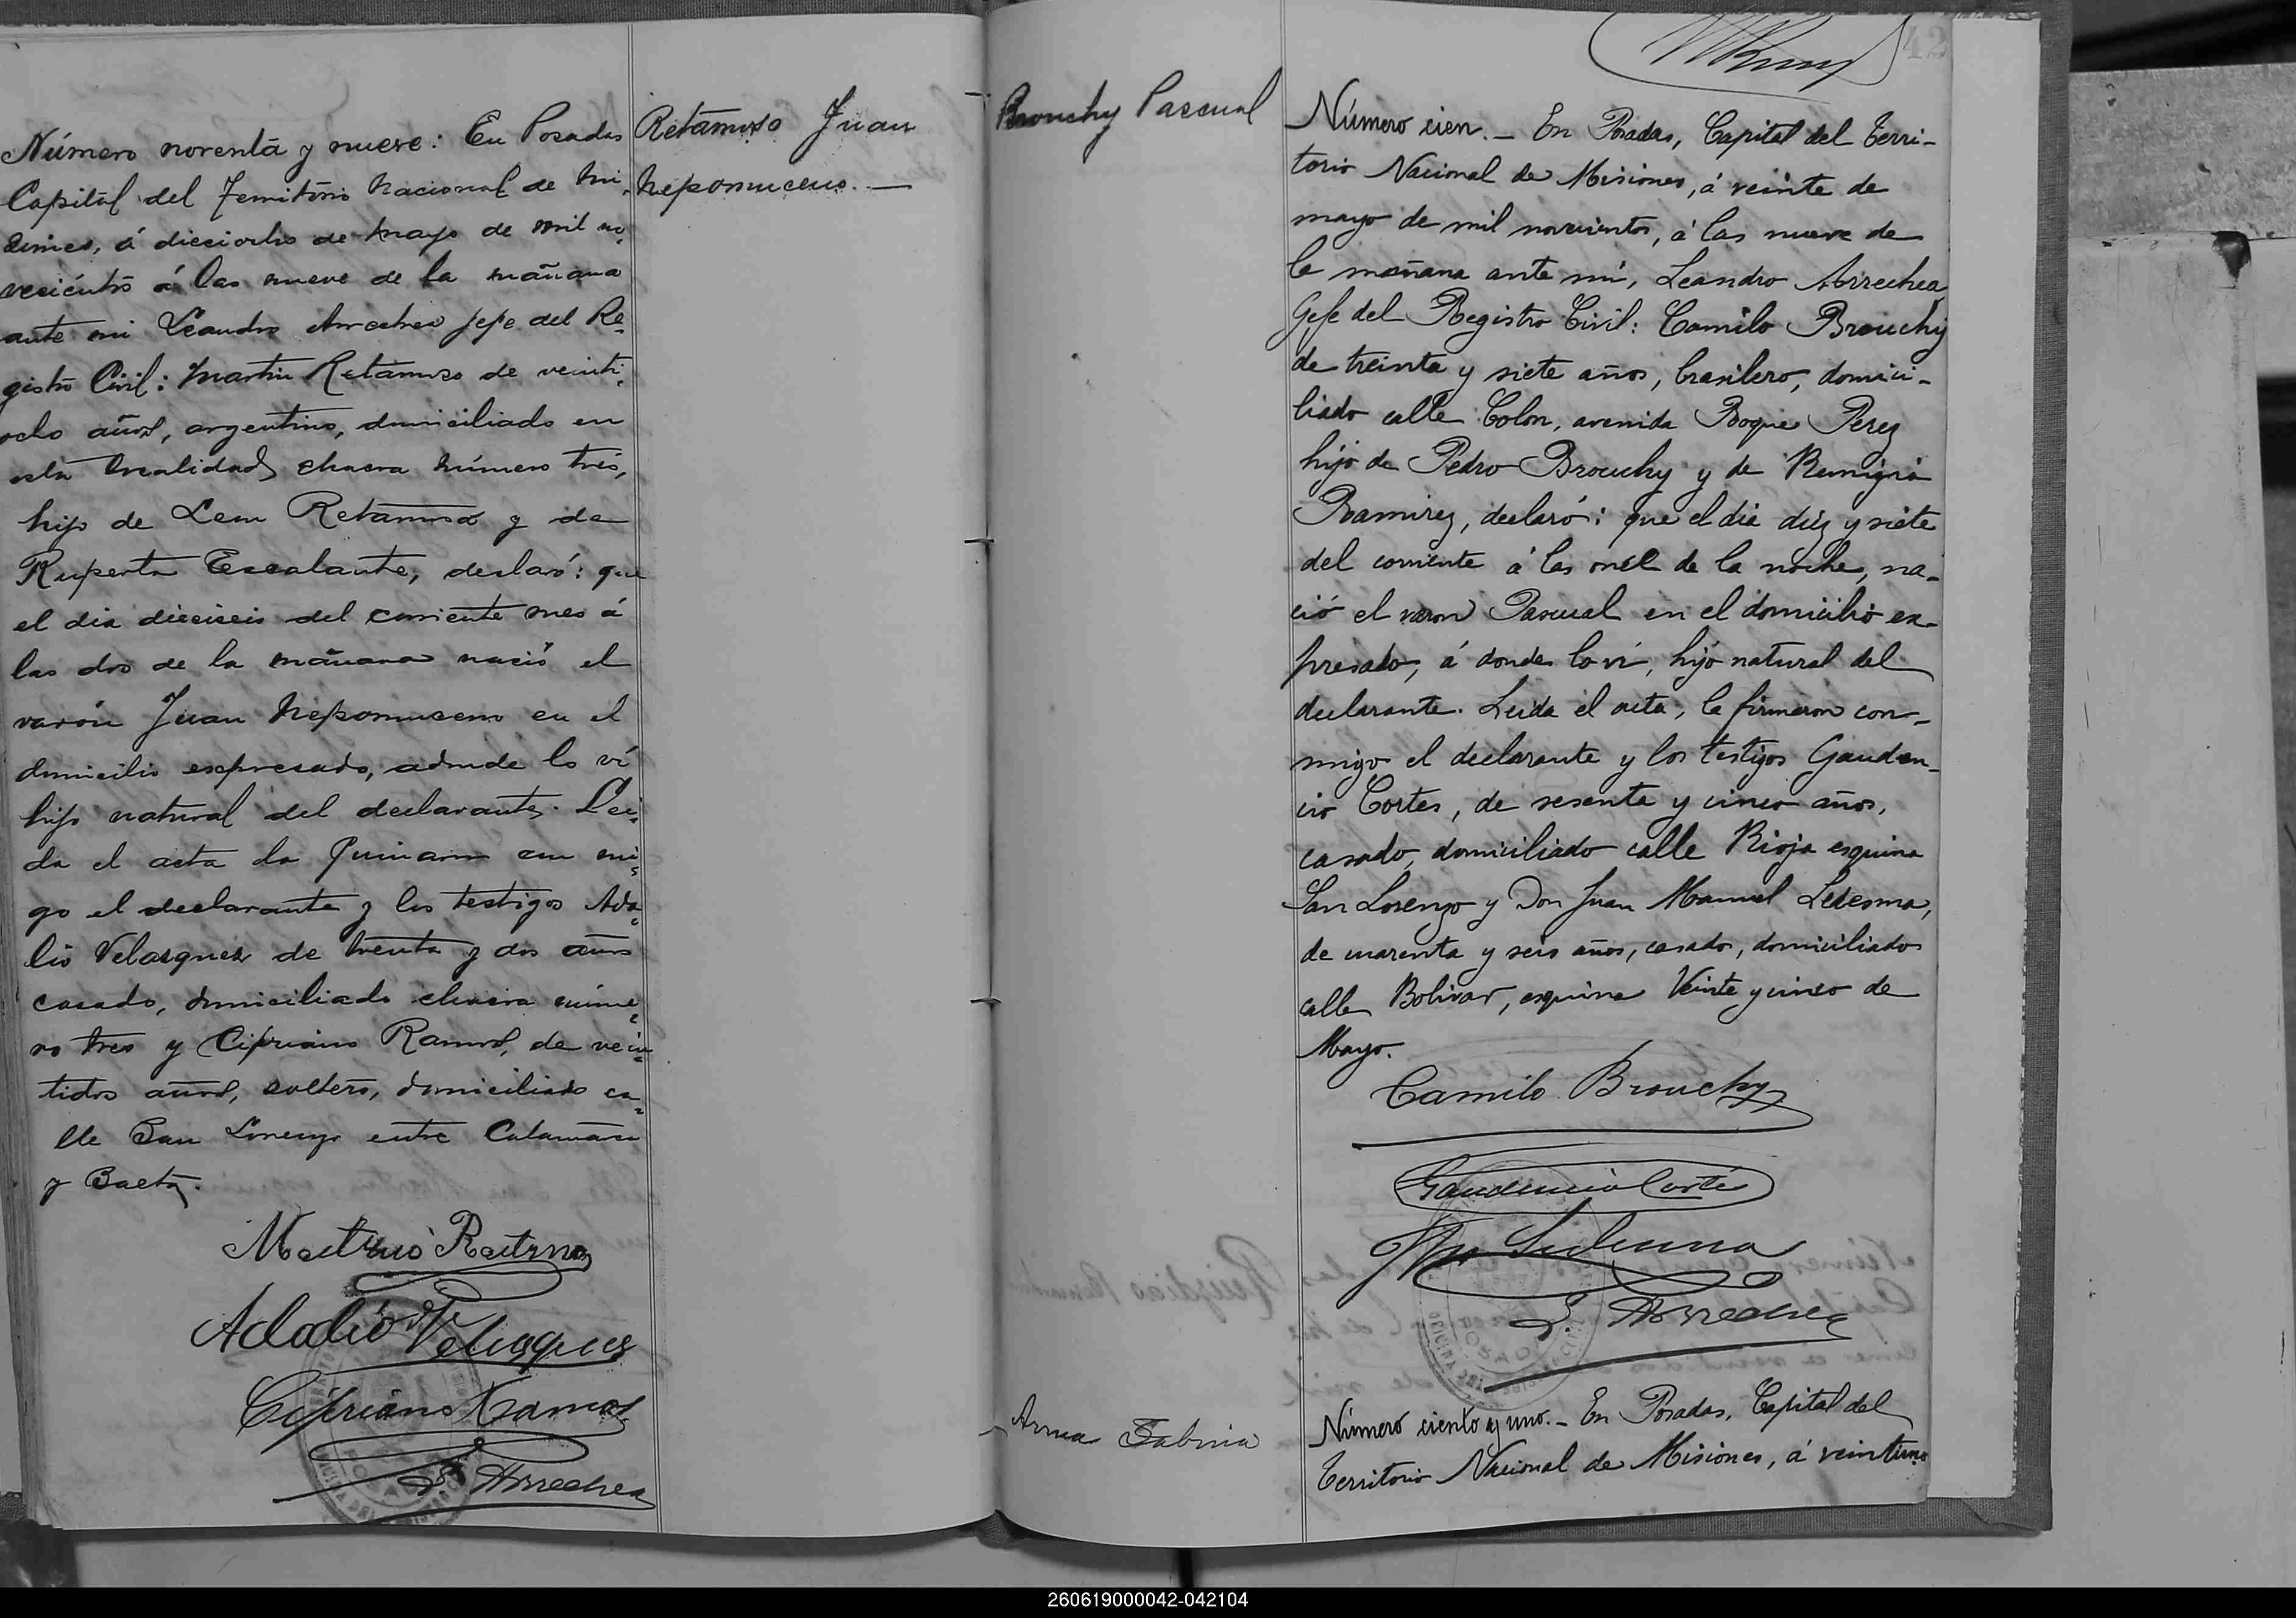 Número noventa y nueve: En Posadas
Capital del Territorio Nacional de Mi-
siones, á dieciocho de Mayo de mil no-
vecientos á las nueve de la mañana
ante mi Leandro Arrechea Jefe del Re-
gistro Civil: Martin Retamozo de veinti-
ocho años, argentino, domiciliado en
esta localidad, chacra número tres,
hijo de Retamozo y de
Ruperta Escalante, declaró: que
el dia dieciseis del corriente mes á
las dos de la mañana nació el
varón Juan Nepomuceno en el
domicilio expresado, adonde lo ví
hijo natural del declarante. Lei-
da el acta la firmaron con mi-
go el declarante y los testigos Ada-
lio Velasquez de treinta y dos años
casado, domiciliado chacra núme-
ro tres y Cipriano Ramos, de vein-
tidos años, soltero, domiciliado ca-
lle San Lorenzo entre Catamarca
y Salta.
Retamozo
Adalio Velasquez
Cipriano Ramos
L. Arrechea
Retamozo Juan
Nepomuceno.—
Brouchy Pascual
42
Número cien.— En Posadas, Capital del Terri-
torio Nacional de Misiones, á veinte de
mayo de mil novecientos, á las nueve de
la mañana ante mí, Leandro Arrechea,
Gefe del Registro Civil: Camilo Brouchy
de treinta y siete años, brasilero, domici-
liado calle Colon, avenida Roque Perez
hijo de Pedro Brouchy y de Remigia
Ramirez, declaró: que el dia diez y siete
del corriente á las once de la noche, na-
ció el varon Pascual en el domicilio ex-
presado, á donde lo ví, hijo natural del
declarante. Leida el acta, la firmaron con-
migo el declarante y los testigos Gauden-
cio Cortes, de sesenta y cinco años,
casado, domiciliado calle Rioja esquina
San Lorenzo y Don Juan Manuel Ledesma,
de cuarenta y seis años, casado, domiciliado
calle Bolivar, esquina Veinte y cinco de
Mayo.
Camilo Brouchy
Gaudencio Cortés
Ledesma
L. Arrechea
Sabina
Número ciento y uno.— En Posadas, Capital del
Territorio Nacional de Misiones, á veintiuno
260619000042-042104